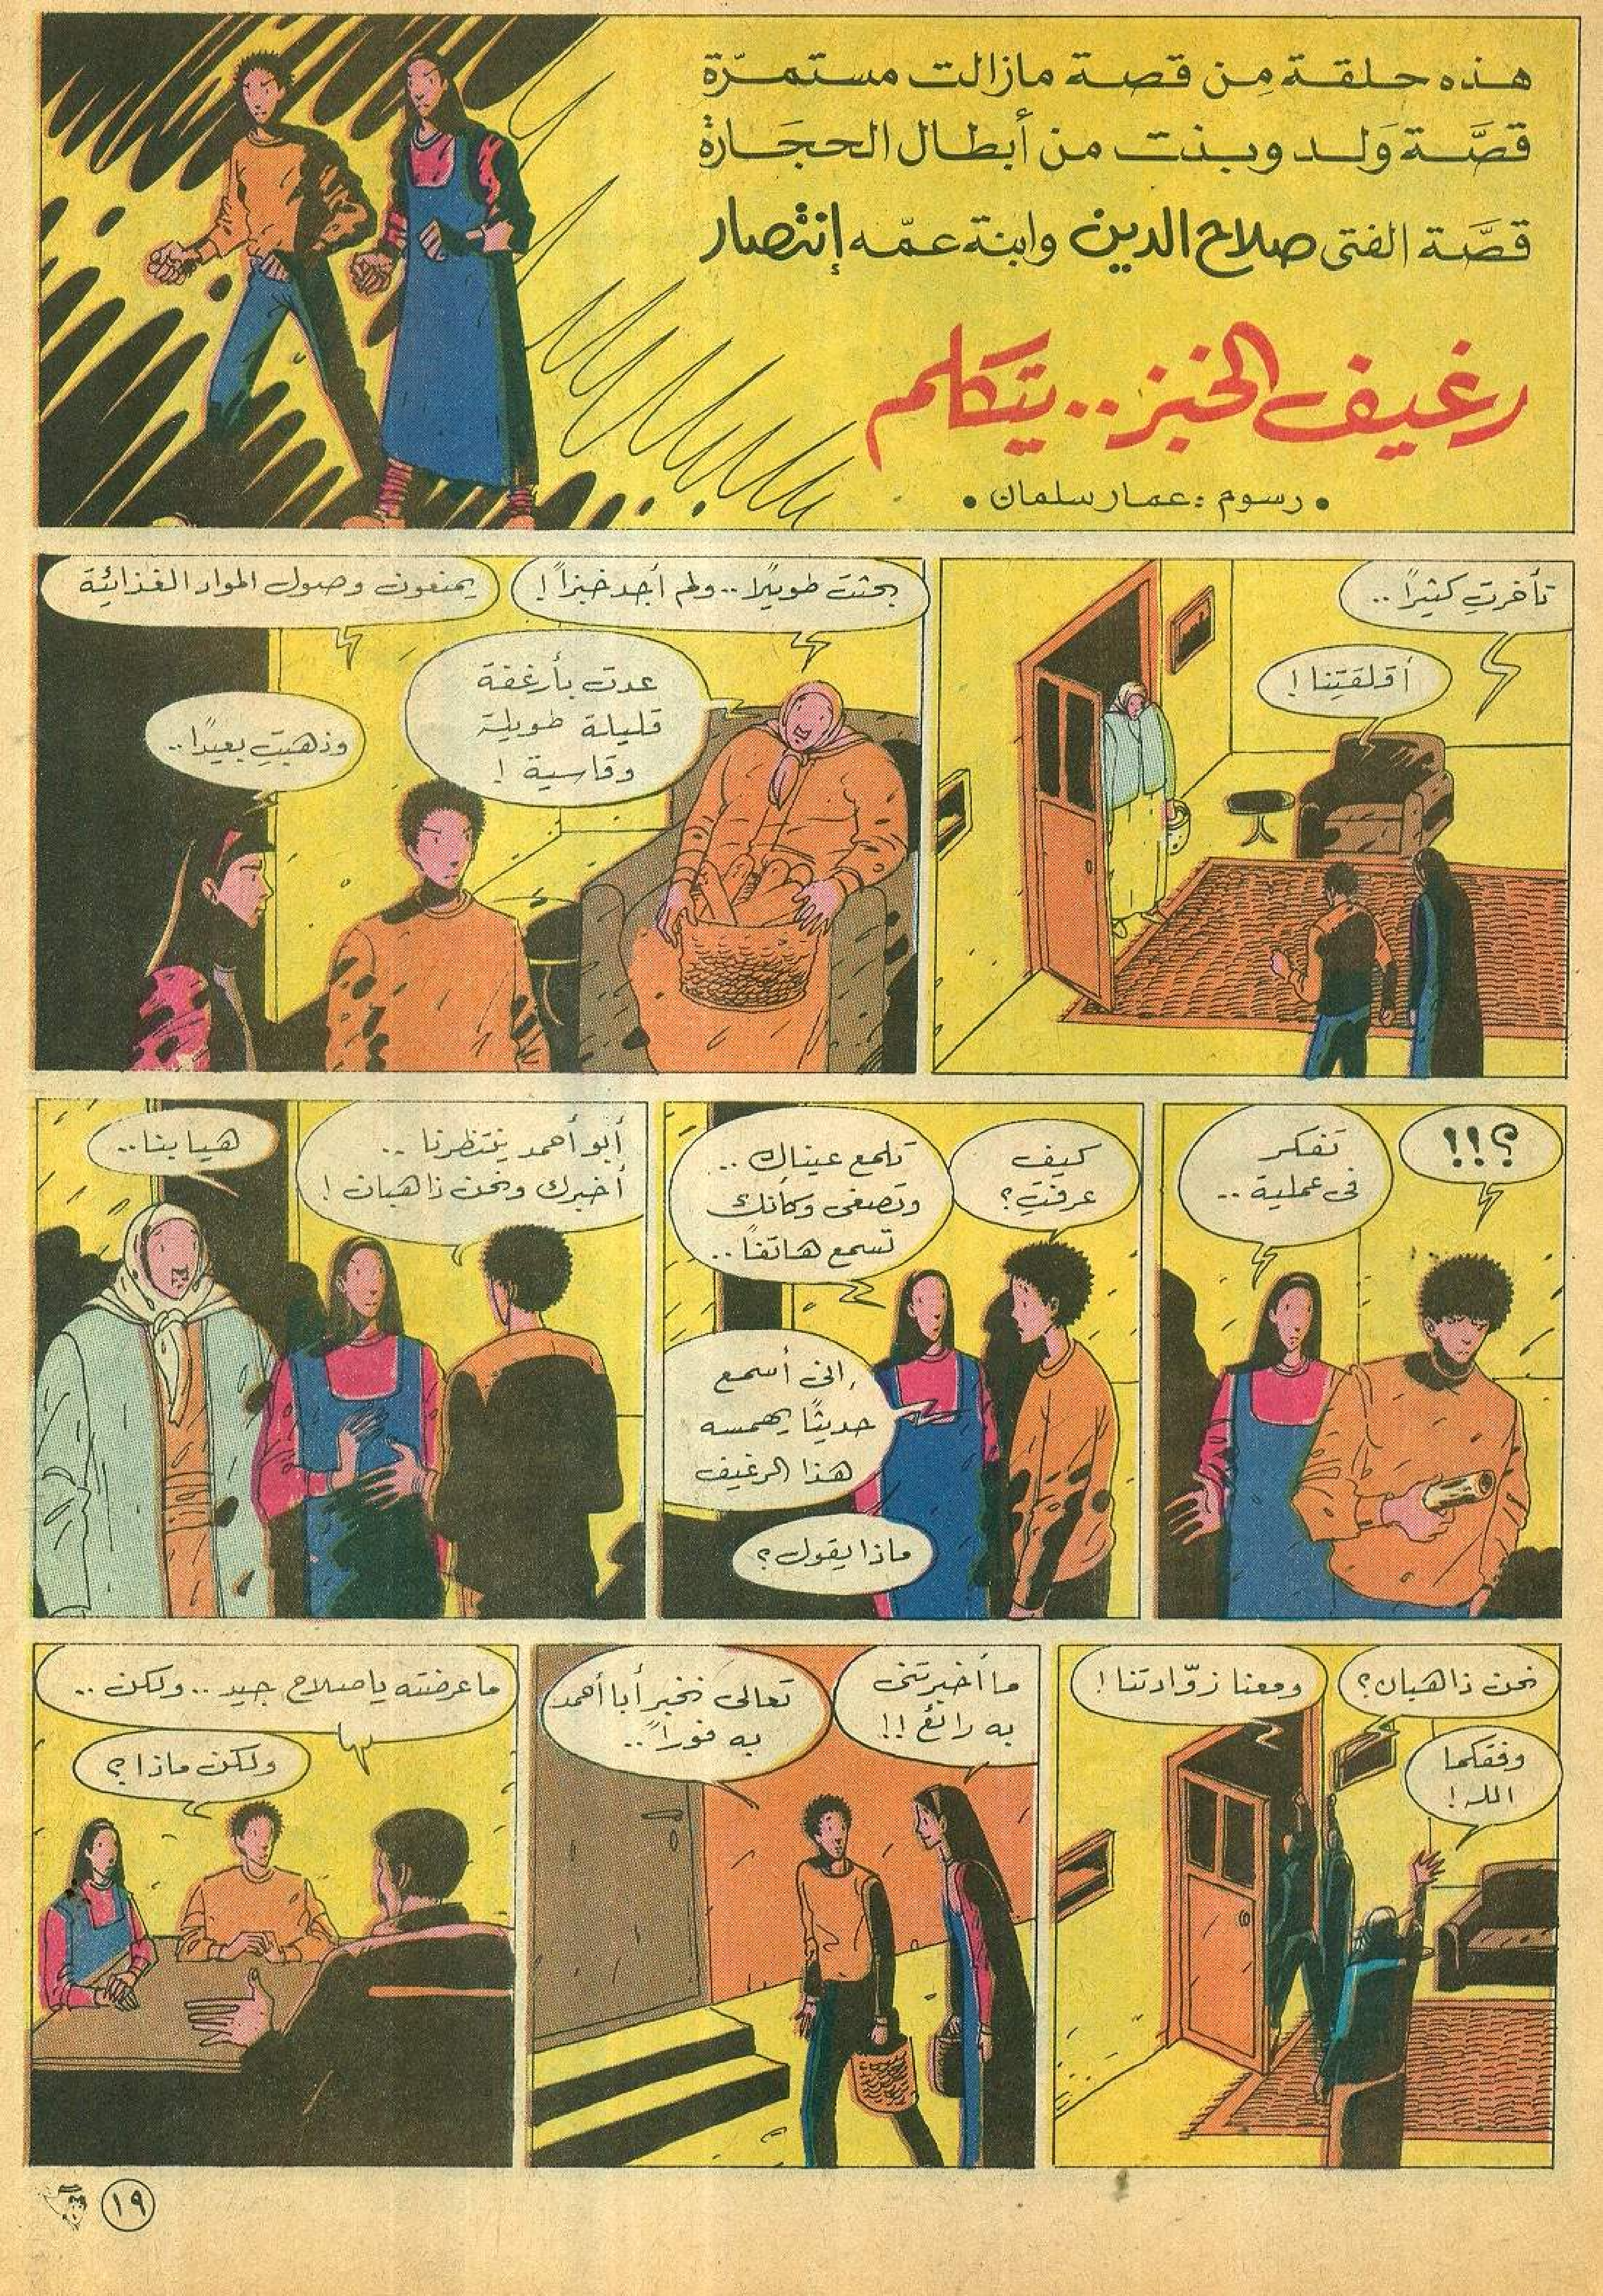 هذه حلقة مِن قصة مازالت مستمرّة
قصَّة وَلد وبنت من أبطال الحجَارة
قصَّة الفتى صلاح الدين وابنة عمّه إنتصار
رغيف الخبز.. يتكلم
• رسوم : عمار سلمان •
تأخرتِ كثيرًا ..
أقلقتِنا !
بحثت طويلًا .. ولم أجد خبزاً !
يمنعون وصول المواد الغذائية
عدت بأرغفة
قليلة طويلة
وقاسية !
وذهبتِ بعيدًا ..
؟!!
تفكر
فى عملية ..
كيف
عرفتِ؟
تلمع عيناك ..
وتصغى وكأنك
تسمع هاتفاً ..
إنى أسمع
حديثًا يهمسه
هذا الرغيف
ماذا يقول ؟
أبو أحمد ينتظرنا ..
أخبرك ونحن ذاهبان !
هيا بنا ..
نحن ذاهبان ؟
ومعنا زوّادتنا !
وفقكما
الله !
ما أخبرتنى
به رائع !!
تعالى نخبر أبا أحمد
به فوراً ..
ما عرضته يا صلاح جيد .. ولكن ..
ولكن ماذا ؟
١٩